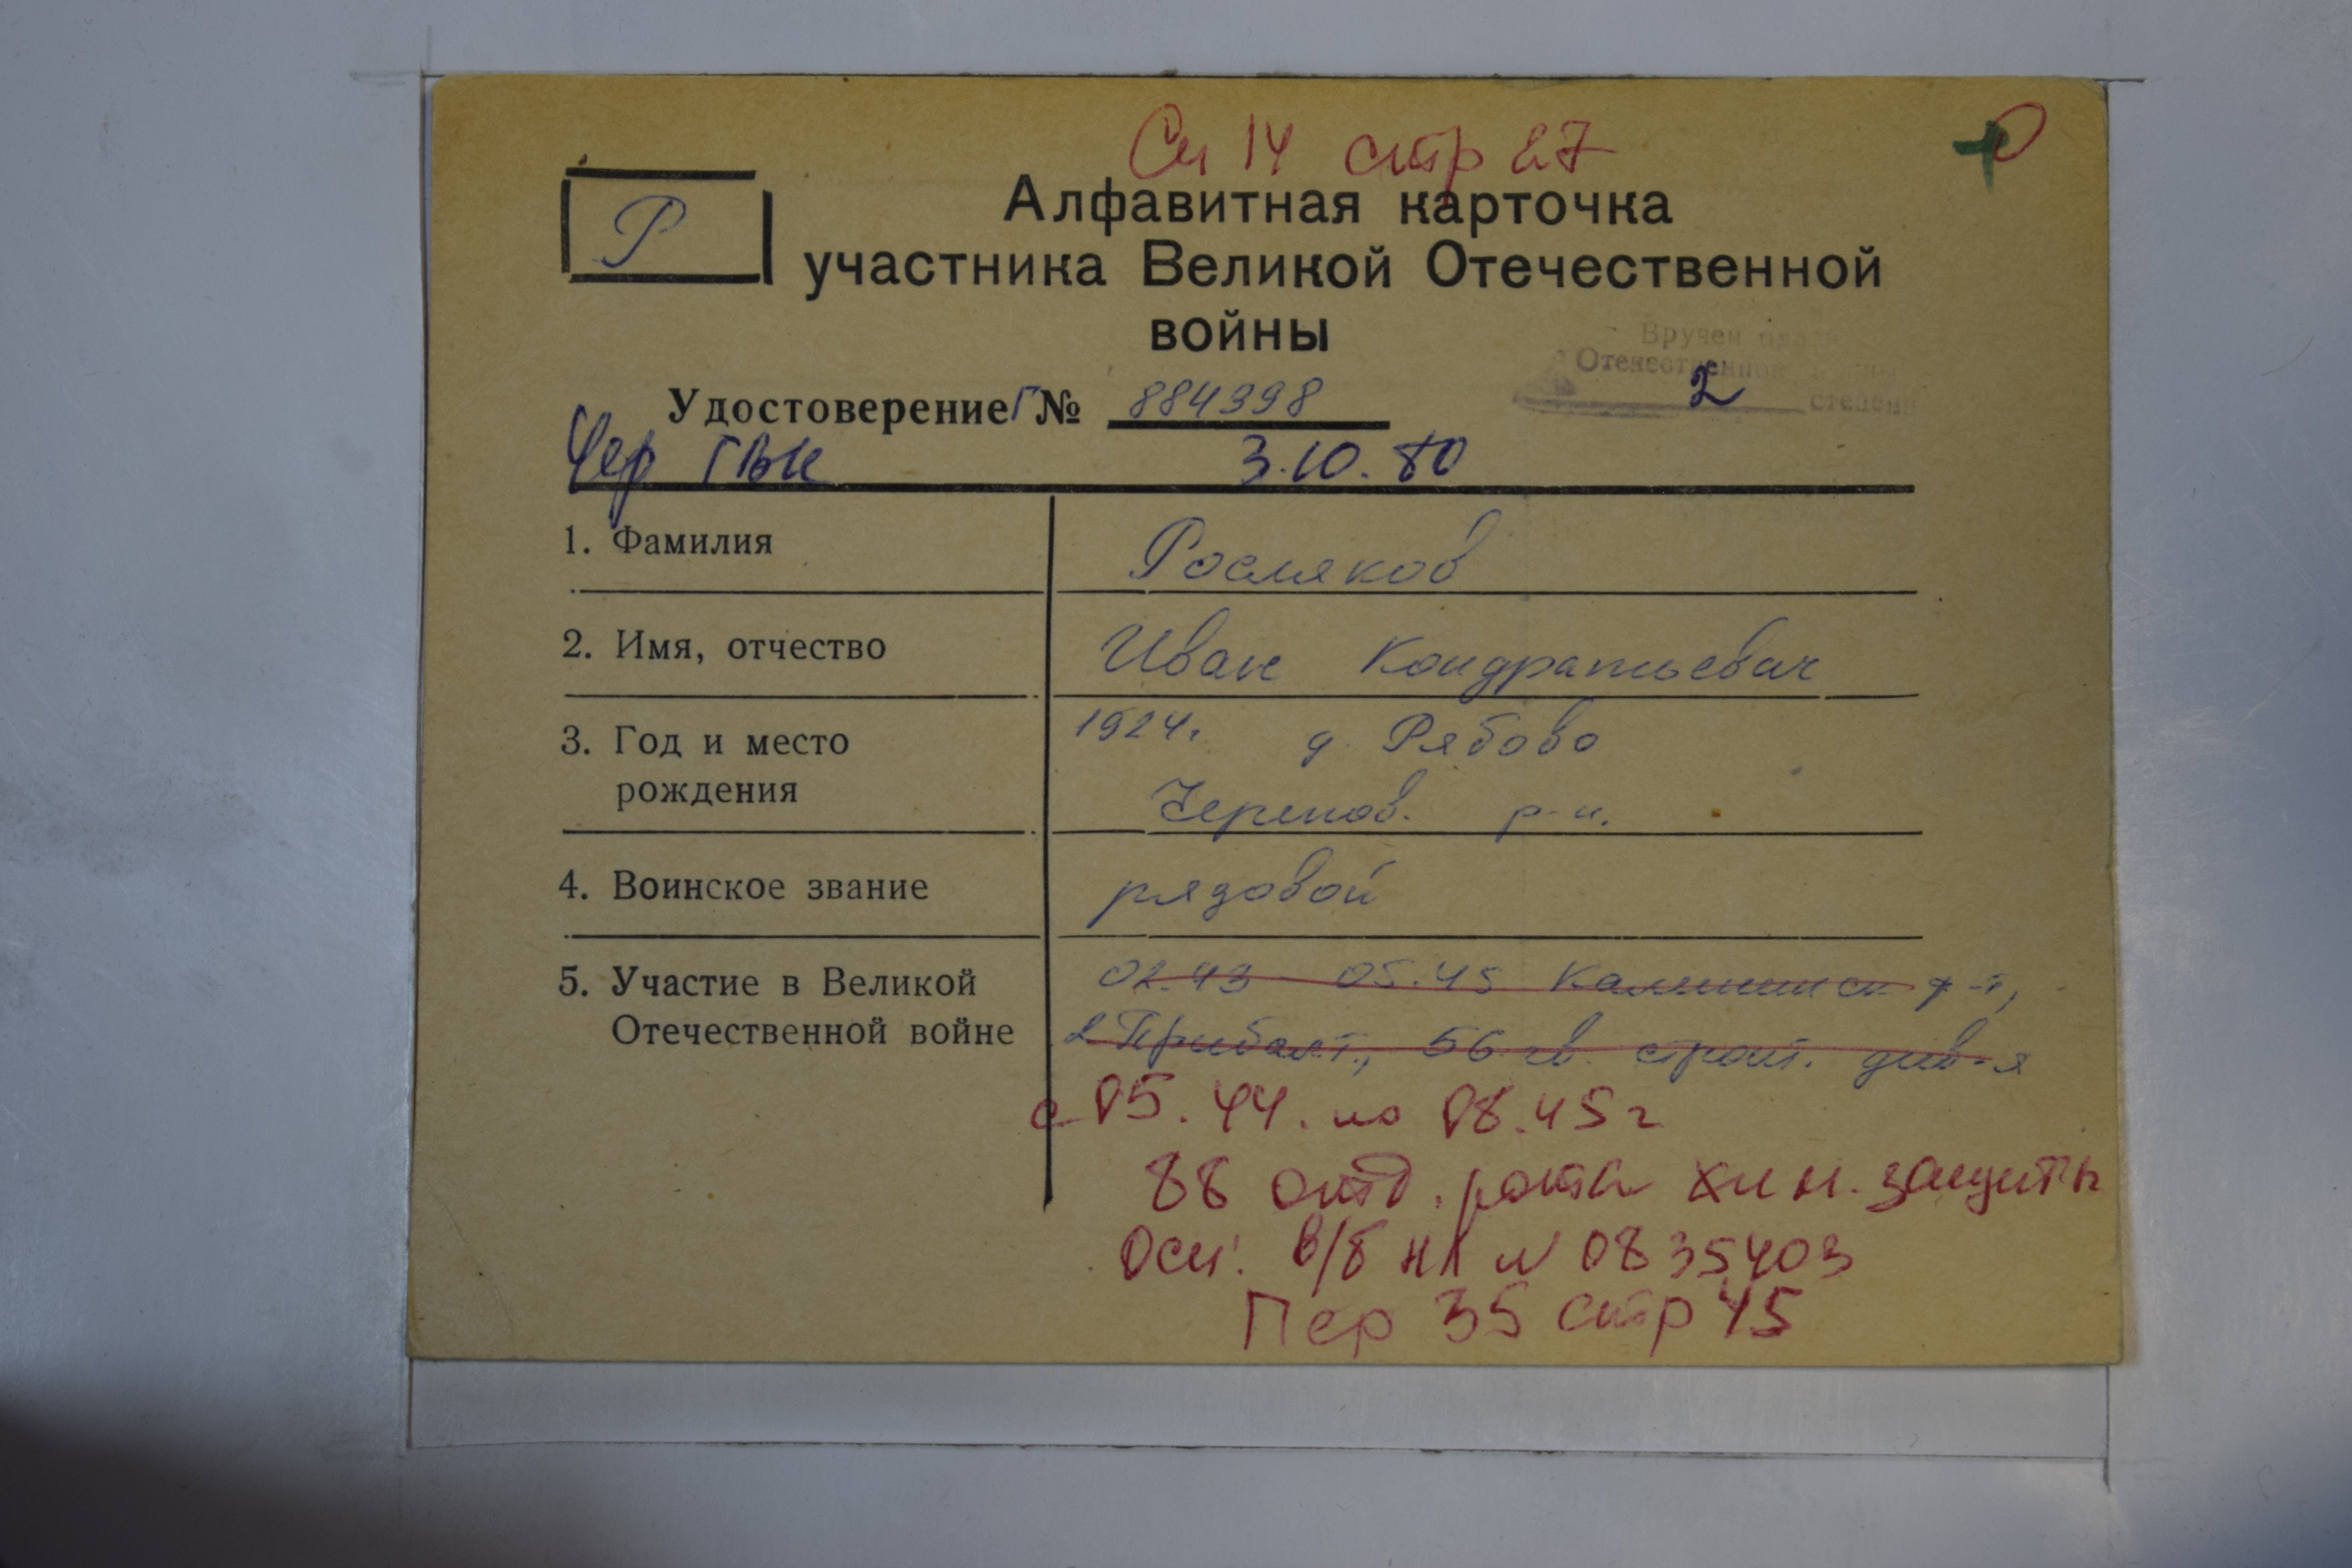 Сп 14 стр 27
Р
Алфавитная карточка
участника Великой Отечественной
войны
Вручен
Отечественной
2 степени
Удостоверение Г № 884398
Чер ГВК 3.10.80
1. Фамилия Росляков
2. Имя, отчество Иван Кондратьевич
3. Год и место 1924г. д. Рябово
рождения Черепов. р-н.
4. Воинское звание рядовой
5. Участие в Великой 02.43 - 05.45 Калининск ф-т,
Отечественной войне 2 Прибалт., 56 гв. див-я
с 05.44. по 08.45г
88 отд. рота хим. защиты
Осн: в/б НЛ N 0835403
Пер 35 стр 45